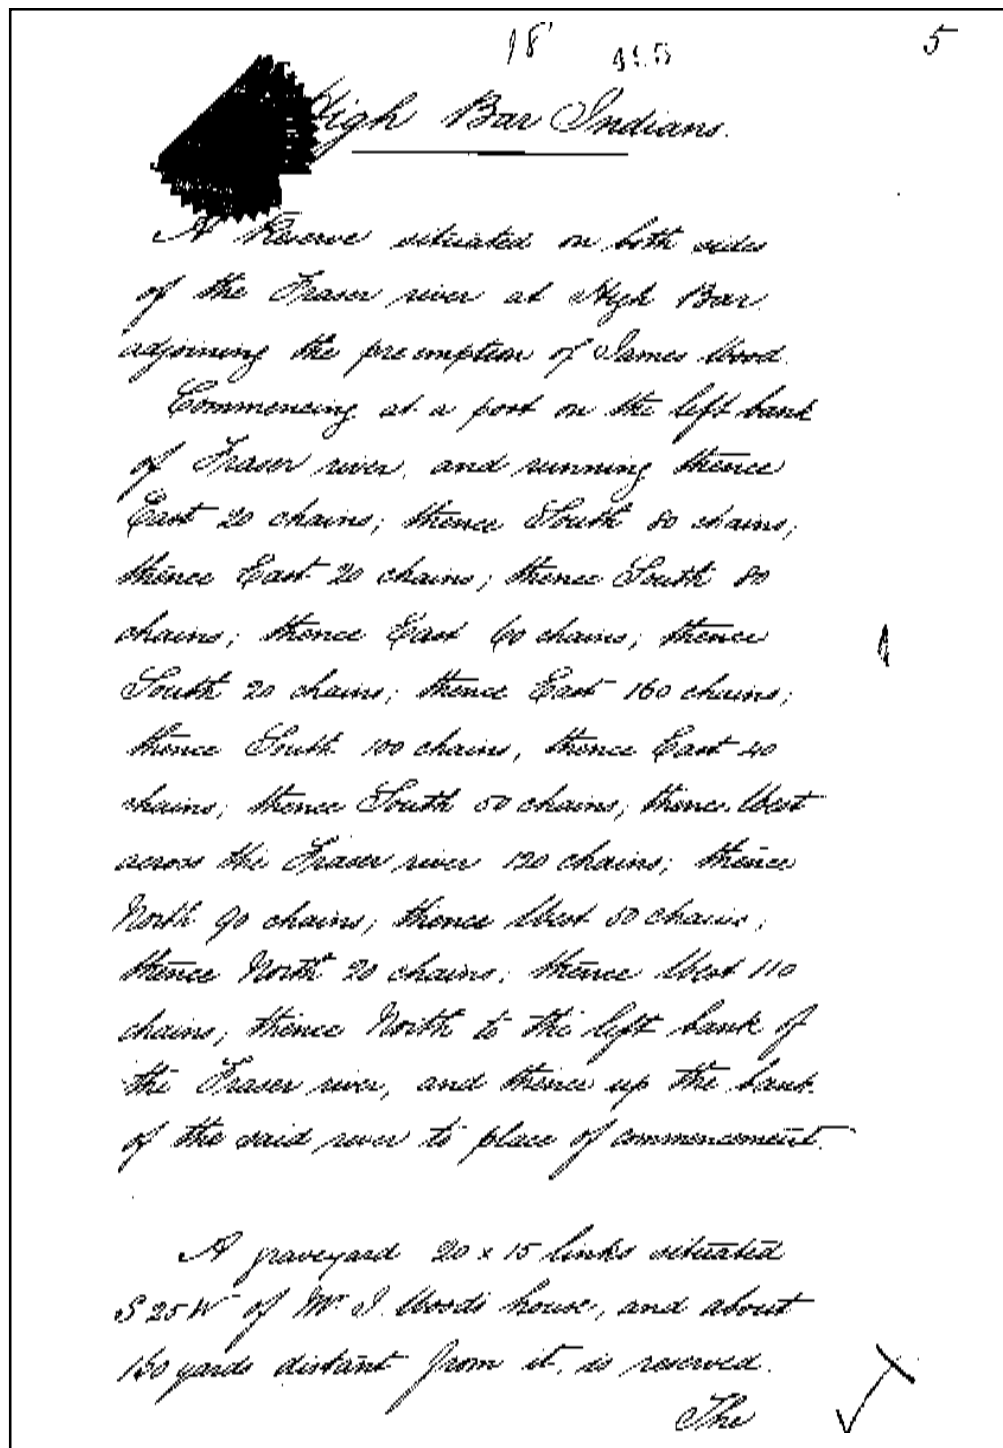 18
5
High Bar Indians.
A Reserve situated on both sides
of the Fraser river at High Bar
adjoining the preemption of James Wood.
Commencing at a post on the left bank
of Fraser river, and running thence
East 20 chains; thence South 80 chains;
thence East 20 chains; thence South 80
chains; thence East 60 chains; thence
South 20 chains; thence East 160 chains;
thence South 100 chains, thence East 40
chains; thence South 50 chains; thence West
across the Fraser river 120 chains; thence
North 90 chains; thence West 50 chains;
thence North 20 chains; thence West 110
chains; thence North to the left bank of
the Fraser river, and thence up the bank
of the said river to place of commencement.
A graveyard 20 x 15 links situated
S 25 W of Mr. J. Woods house, and about
150 yards distant from it, is reserved.
The